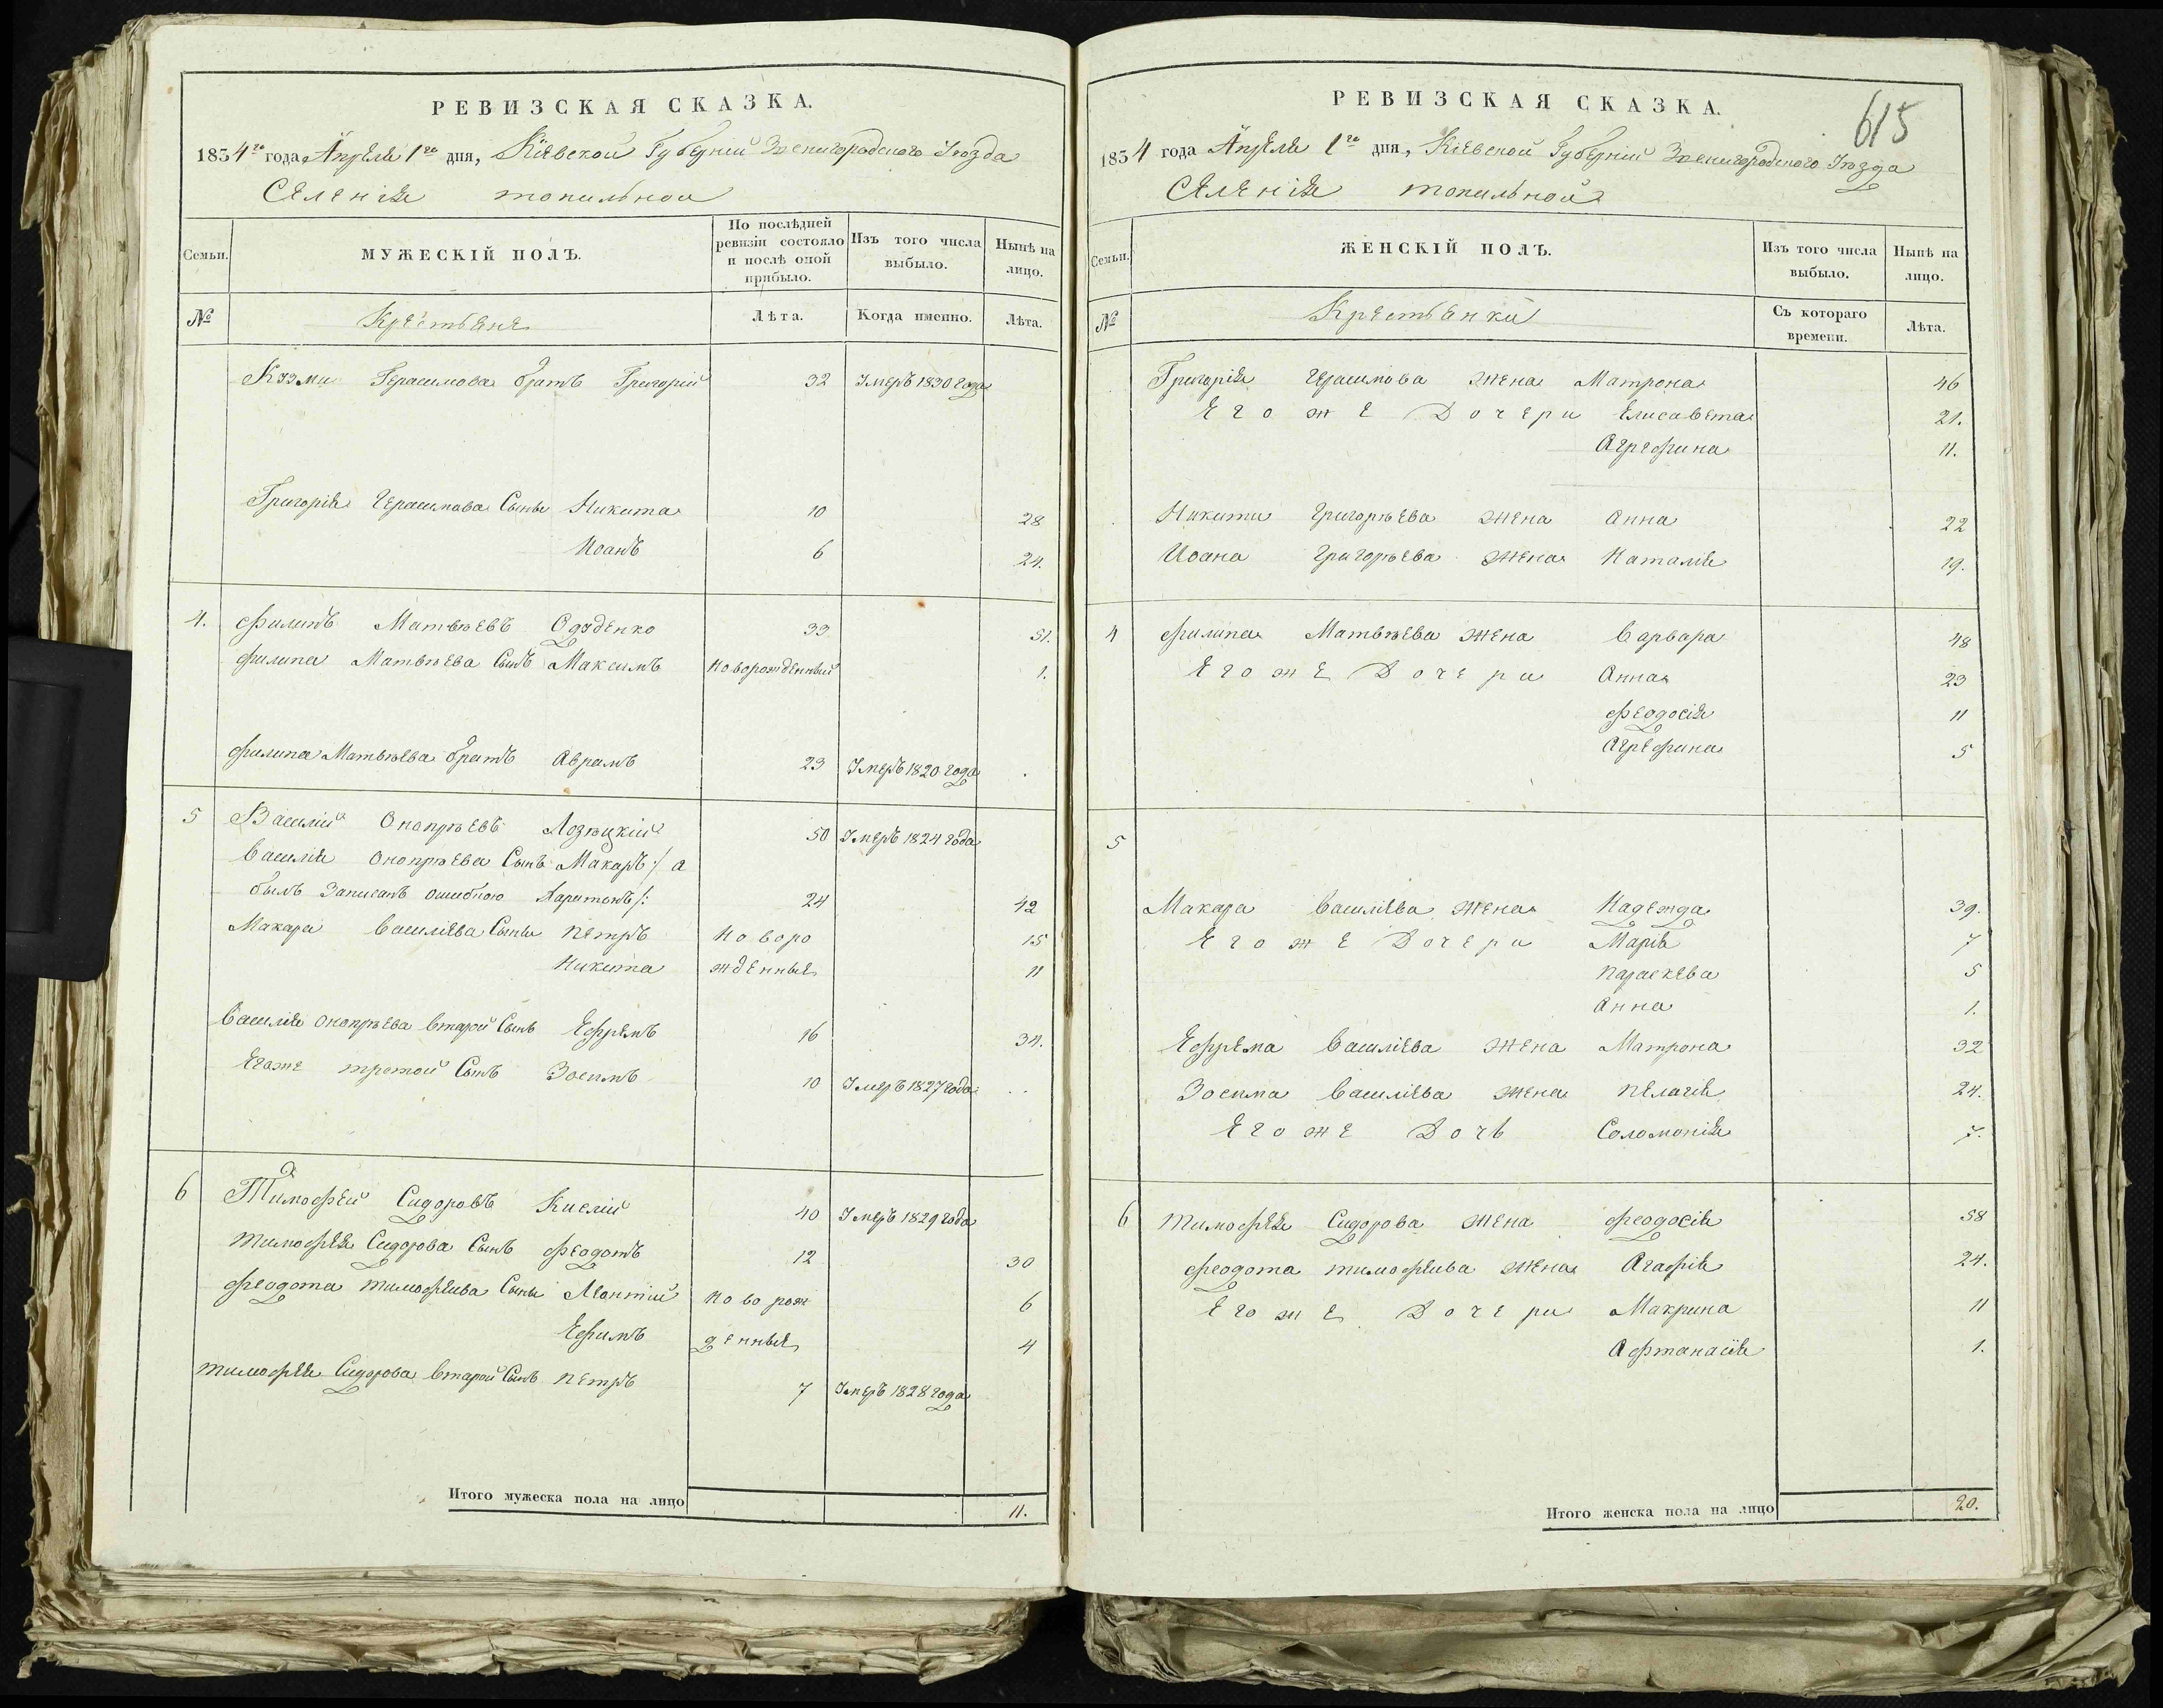 РЕВИЗСКАЯ СКАЗКА.
1834го года Апреля 1го дня, Кіевской Губерніи Звенигородского Уезда
Селенія топильной
Семьи. МУЖЕСКІЙ ПОЛЪ. По послѣдней ревизіи состояло и послѣ оной прибыло. Изъ того числа выбыло. Нынѣ на лицо.
№ Крестьяне Лѣта. Когда именно. Лѣта.
Козми Герасимова братъ Григорій 32 Умеръ 1830 года
Григорія Герасимова Сыны Никита 10 28
Иоанъ 6 24.
4. Филипъ Матвѣевъ 33 51.
Филипа Матвѣева Сынъ Максимъ новорожденный 1.
Филипа Матвѣева братъ Аврамъ 23 Умеръ 1820 года
5 Василій Онопрѣевъ Лозѣцкій 50 Умеръ 1824 года
Василія Онопрѣева Сынъ Макаръ /: а
былъ записанъ ошибкою Харитонъ /: 24 42
Макара Василіева Сыны Петръ новоро 15
Никита жденные 11
Василія Онопрѣева второй Сынъ Ефремъ 16 34.
Егоже третой Сынъ Зосимъ 10 Умеръ 1827 года
6 Тимофей Сидоровъ Кислій 40 Умеръ 1829 года
Тимофея Сидорова Сынъ Феодотъ 12 30
Феодота Тимофеива Сыны Леонтий новорож 6
Ефимъ денные 4
Тимофея Сидорова второй Сынъ Петръ 7 Умеръ 1828 года
Итого мужеска пола на лицо 11.
РЕВИЗСКАЯ СКАЗКА. 615
1834 года Апреля 1го дня, Кіевской Губерніи Звенигородского Уезда
Селенія топильной
Семьи. ЖЕНСКІЙ ПОЛЪ. Изъ того числа выбыло. Нынѣ на лицо.
№ Крестьянки Съ котораго времени. Лѣта.
Григорія Герасимова жена Матрона 46
Егоже Дочери Елисавета 21.
Агрефина 11.
Никити Григорѣева жена Анна 22
Иоана Григорѣева жена Наталия 19.
4 Филипа Матвѣева жена Варвара 48
Егоже Дочери Анна 23
Феодосія 11
Агрефина 5
5
Макара Василіева жена Надежда 39.
Егоже Дочери Марія 7
Параскева 5
Анна 1.
Ефрема Василіева жена Матрона 32
Зосима Василіева жена Пелагія 24.
Егоже Дочь Соломонія 7.
6 Тимофея Сидорова жена Феодосія 58
Феодота Тимофеива жена Агафія 24.
Егоже Дочери Макрина 11
Афтанасія 1.
Итого женска пола на лицо 20.